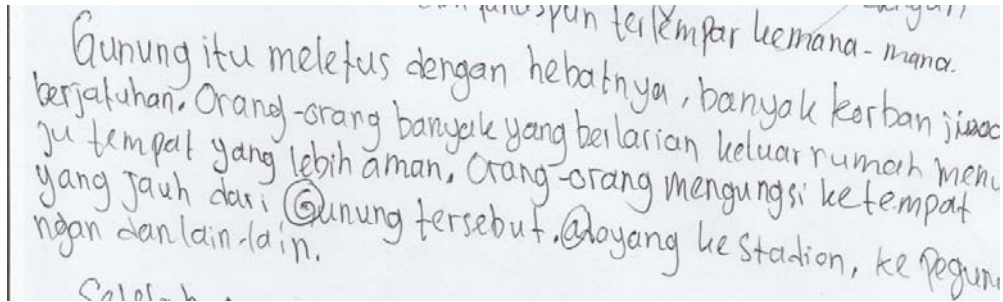 terlempar kemana-mana.
Gunung itu meletus dengan hebatnya, banyak korban jiwa
berjatuhan. Orang-orang banyak yang berlarian keluar rumah menu
ju tempat yang lebih aman. Orang-orang mengungsi ketempat
yang jauh dari Gunung tersebut. Adayang ke stadion, ke Pegunu
ngan dan lain-lain.